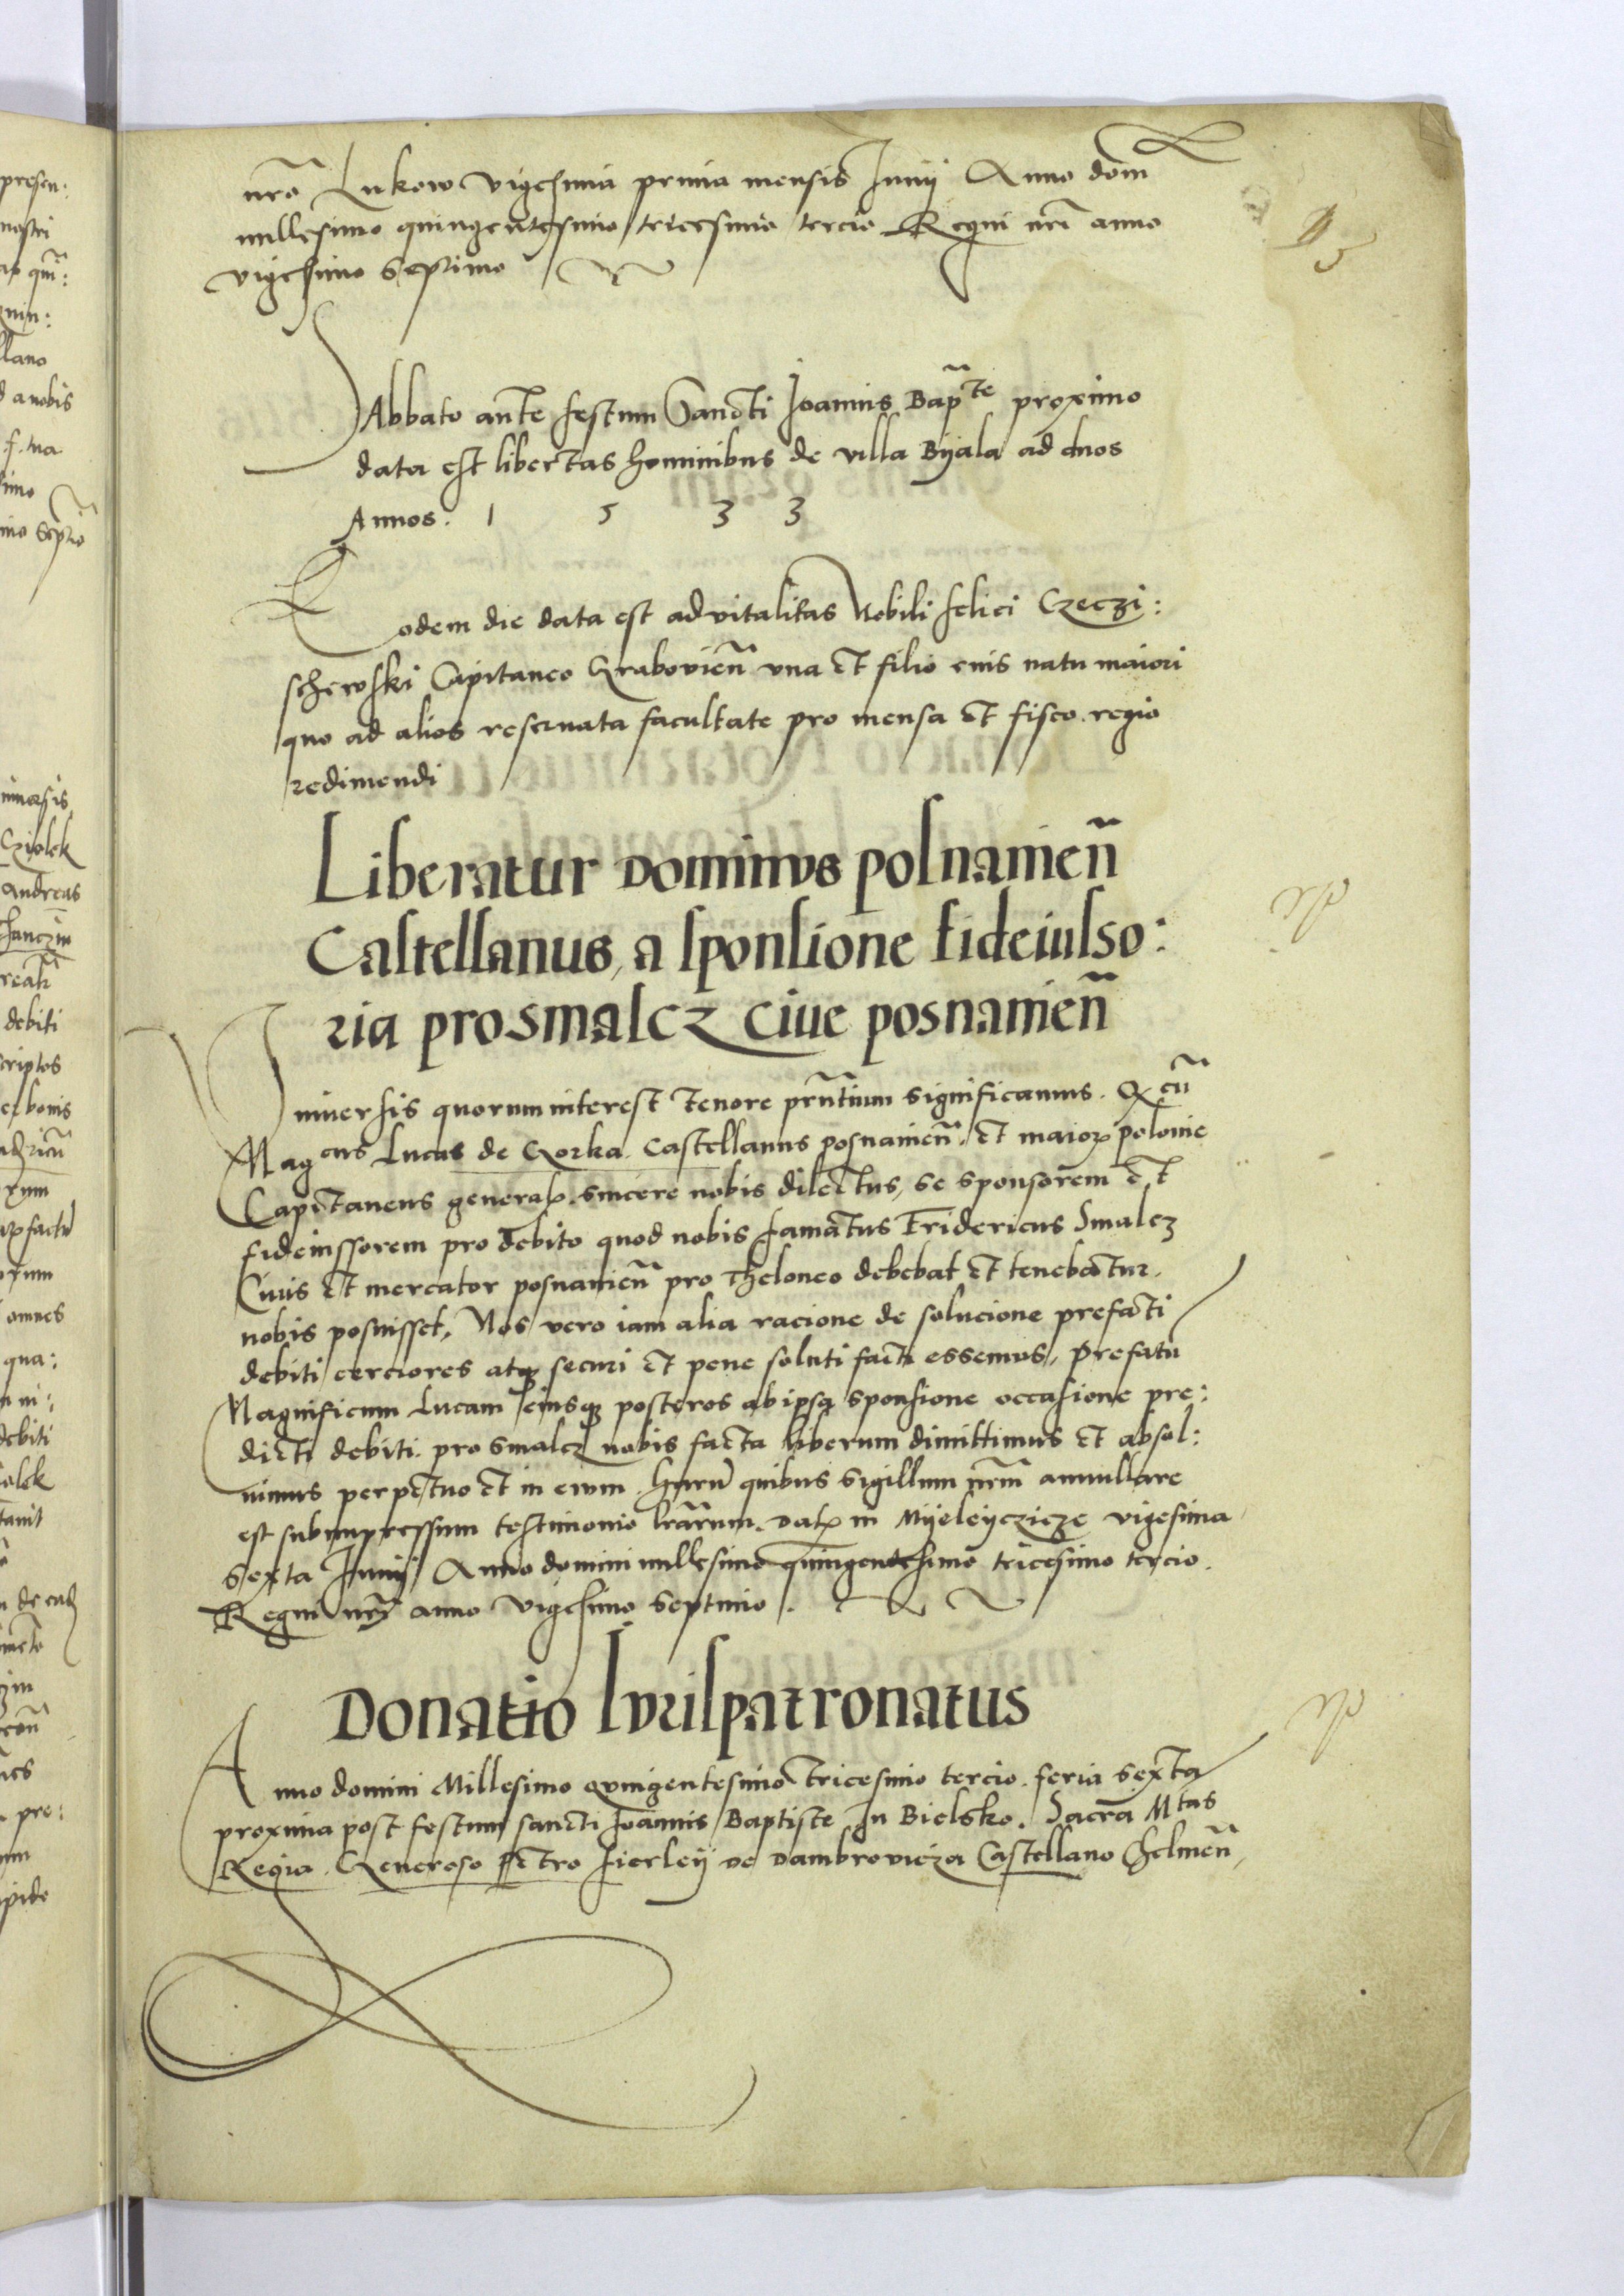 nrã Lukow vigesima prima mensis Junij Anno dom̃
millesimo quingentesimo tricesimo tercio Regni nr̃i anno
vigesimo septimo
SAbbato ante festum Sancti Joannis Bap̃te proximo
data est libertas hominibus de villa Byala ad duos
Annos. 1 5 3 3
Eodem die data est advitalitas Nobili felici Czeczi:
schewski Capitaneo Graboviens̃ vna et filio eius natu maiori
quo ad alios reseruata facultate pro mensa et fisco regio
redimendi
Liberatur Dominus posnanieñ
Castellanus, a sponsione fideiusso:
ria pro smalcz ciue posnanieñ
Vniuersis quorum interest tenore pr̃ntium significamus. Q cũ
Magcus Lucas de Gorka Castellanus posnanieñ. et maioris polonie
Capitaneus generalis sincere nobis dilectus, se sponsorem et
fideiussorem pro debito quod nobis famatus Fridericus Smalcz
Ciuis et mercator posnanieñ pro theloneo debebat et tenebatur.
nobis posuisset, Nos vero iam alia racione de solucione prefati
debiti cerciores atq securi et pene soluti facti essemus, prefatũ
Magnificum Lucam eiusq posteros ab ipsa sponsione occasione pre:
dicti debiti pro Smalcz nobis facta liberum dimittimus et absol:
uimus perpetuo et in ewm. harũ quibus sigillum nr̃m annullare
est subimpressum testimonio lr̃arum. Dat in Myeleyczicze vigesima
sexta Junij Anno domini millesimo quingentesimo tricesimo tercio.
Regni nr̃i anno vigesimo septimo.
Donatio Iurispatronatus
Anno domini Millesimo quingentesimo tricesimo tercio. feria sexta
proxima post festum sancti Joannis Baptiste In Bielsko. Sacra Mtas
Regia. Generoso petro fierleij de dambrowicza Castellano Chelmeñ,